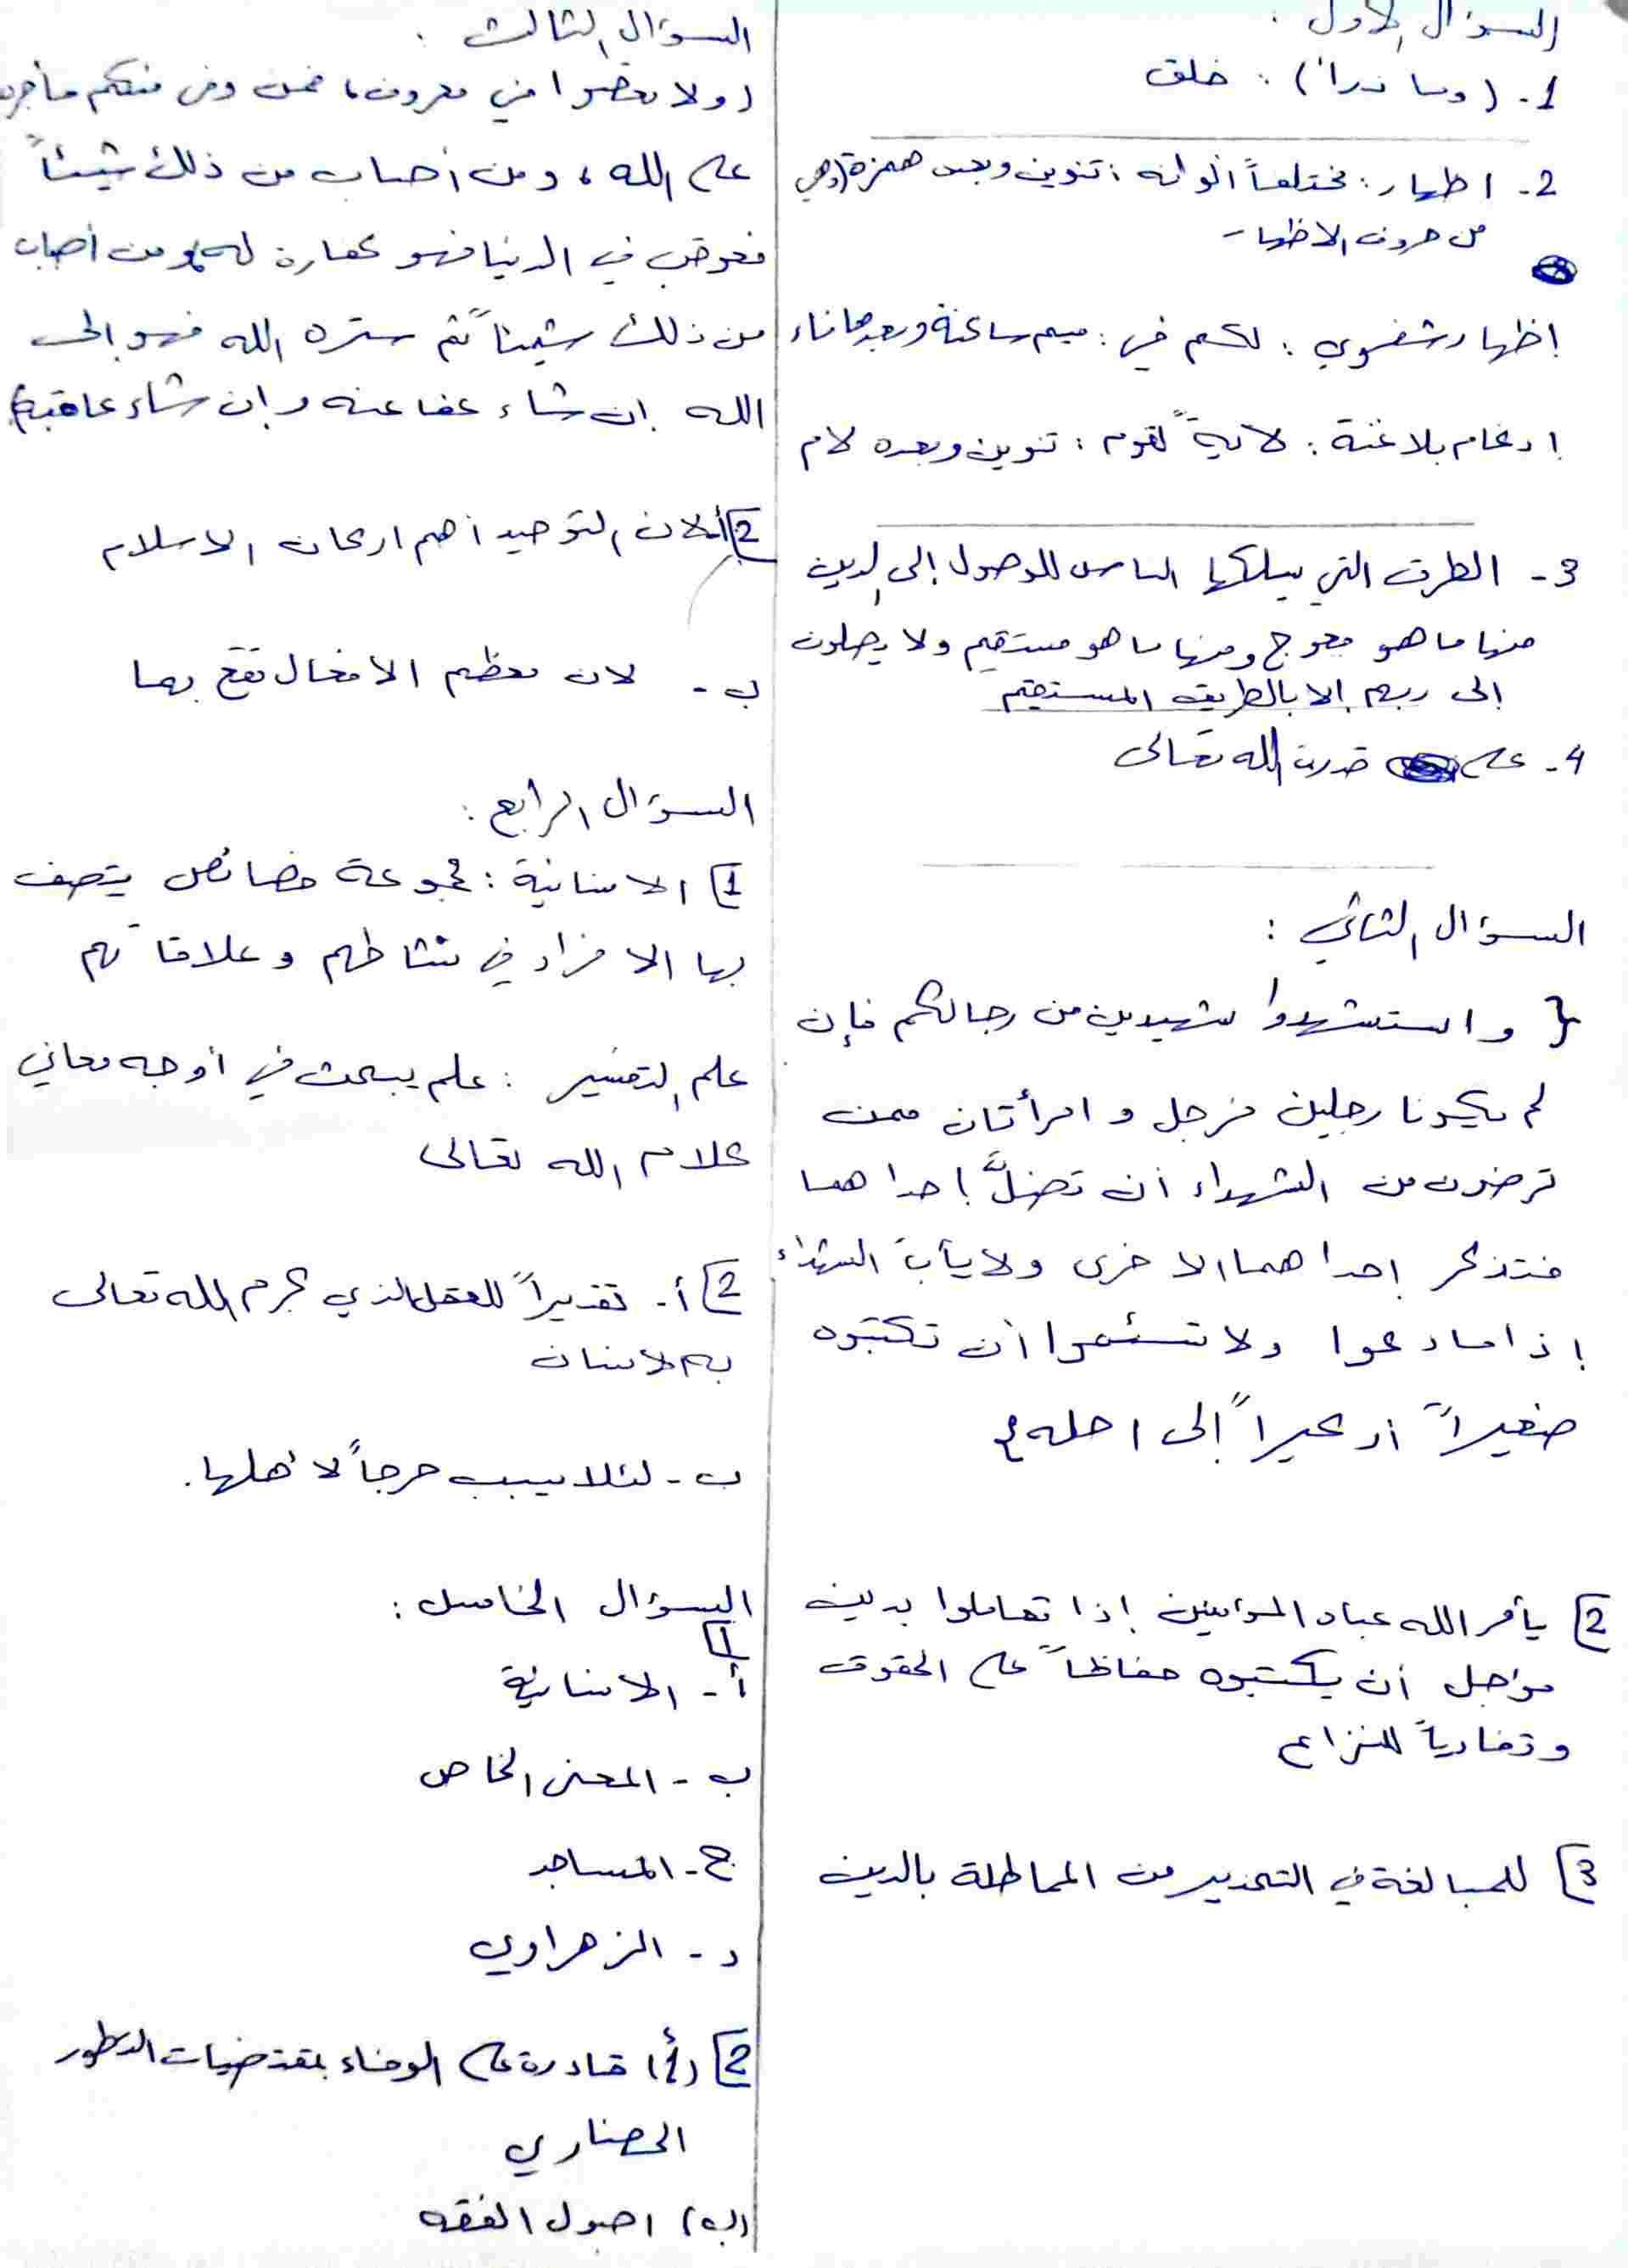 السؤال الأول :
1- (وما ذرأ) : خلق
2- اظهار : مختلفاً ألوانه : تنوين وبعده همزة (وهي
من حروف الاظهار
إظهار شفوي : لكم في : ميم ساكنة وبعدها فاء
إدغام بلا غنة : لآيةً لقوم : تنوين وبعده لام
3- الطرق التي يسلكها الناس للوصول إلى الدين
منها ما هو معوج ومنها ما هو مستقيم ولا يصلون
إلى ربهم إلا بالطريق المستقيم
4- على قدرت الله تعالى
السؤال الثاني :
{ واستشهدوا شهيدين من رجالكم فإن
لم يكونا رجلين فرجل وامرأتان ممن
ترضون من الشهداء أن تضلَّ إحداهما
فتذكر إحداهما الاخرى ولا يأبَ الشهداء
إذا ما دعوا ولا تسئموا أن تكتبوه
صغيراً أو كبيراً إلى اجله }
2] يأمر الله عباد المؤمنين إذا تعاملوا بدين
مؤجل أن يكتبوه حفاظاً على الحقوق
وتفادياً للنزاع
3] للمبالغة في التحذير من المماطلة بالدين
السؤال الثالث :
(ولا تعصوا في معروف، فمن وفى منكم فأجره
على الله، ومن أصاب من ذلك شيئاً
فعوقب في الدنيا فهو كفارة له، ومن أصاب
من ذلك شيئاً ثم ستره الله فهو إلى
الله إن شاء عفا عنه وإن شاء عاقبه)
2] أ- لان التوحيد أهم اركان الاسلام
ب- لان معظم الافعال تقع بهما
السؤال الرابع :
1] الانسانية : مجموعة خصائص يتصف
بها الافراد في نشاطهم وعلاقاتهم
علم التفسير : علم يبحث في أوجه معاني
كلام الله تعالى
2] أ- تقديراً للعقل الذي كرم الله تعالى
به الانسان
ب- لئلا يسبب حرجاً لأهلها.
السؤال الخامس :
1]
أ- الانسانية
ب- المعنى الخاص
ج- المساجد
د- الزهراوي
2] (أ) قادرة على الوفاء بمقتضيات التطور
الحضاري
(ب) اصول الفقه